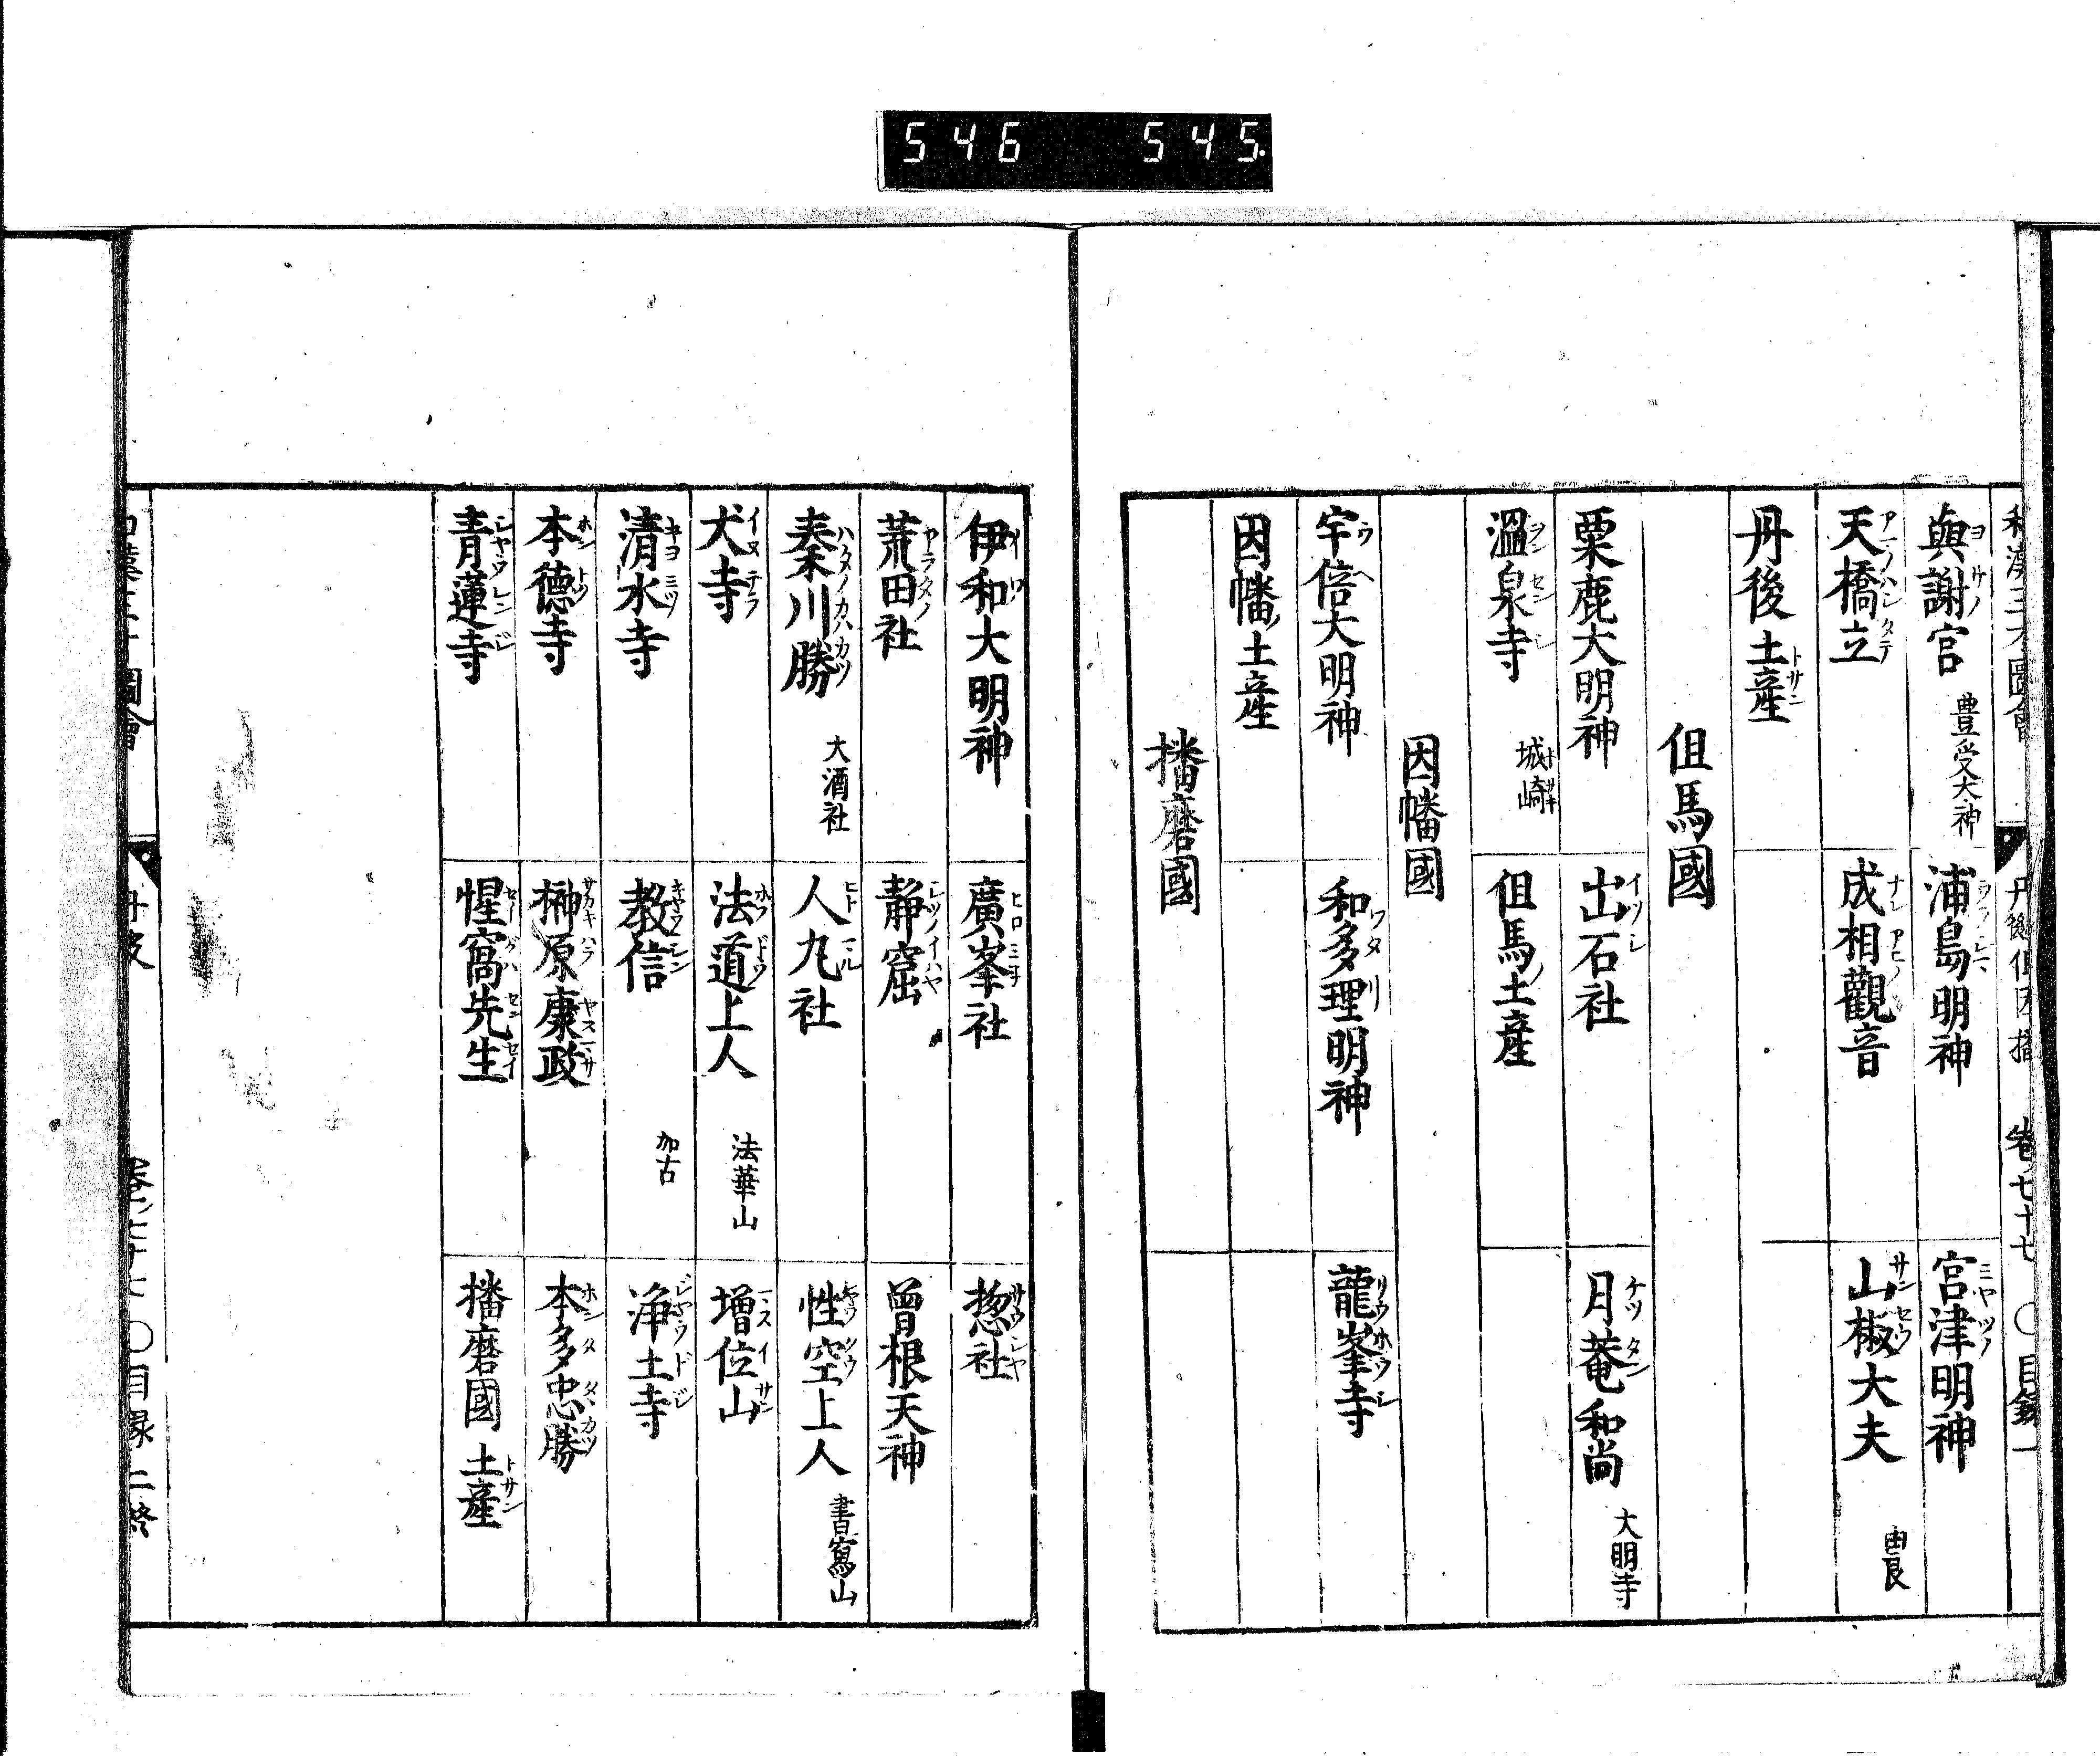 546 545
和漢三才圖會 丹後但因播 卷七十七 〇目錄一
與謝宮 豊受大神 浦島明神 宮津明神
天橋立 成相觀音 山椒大夫 由良
丹後土産
但馬國
粟鹿大明神 出石社 月菴和尚 大明寺
溫泉寺 城崎 但馬ノ土産
因幡國
宇倍大明神 和多理明神 龍峯寺
因幡ノ土産
播磨國
伊和大明神 廣峯社 惣社
荒田社 靜窟 曾根天神
秦川勝 大酒社 人丸社 性空上人 書寫山
犬寺 法道上人 法華山 增位山
清水寺 教信 加古 淨土寺
本德寺 榊原康政 本多忠勝
青蓮寺 惺窩先生 播磨國土産
〇目录 二終